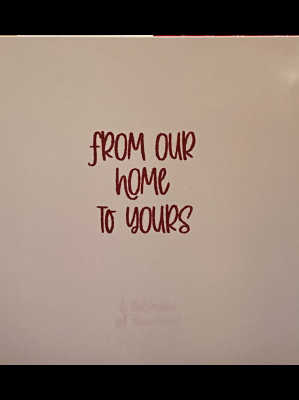 fROM OUR
hOME
TO YOURS